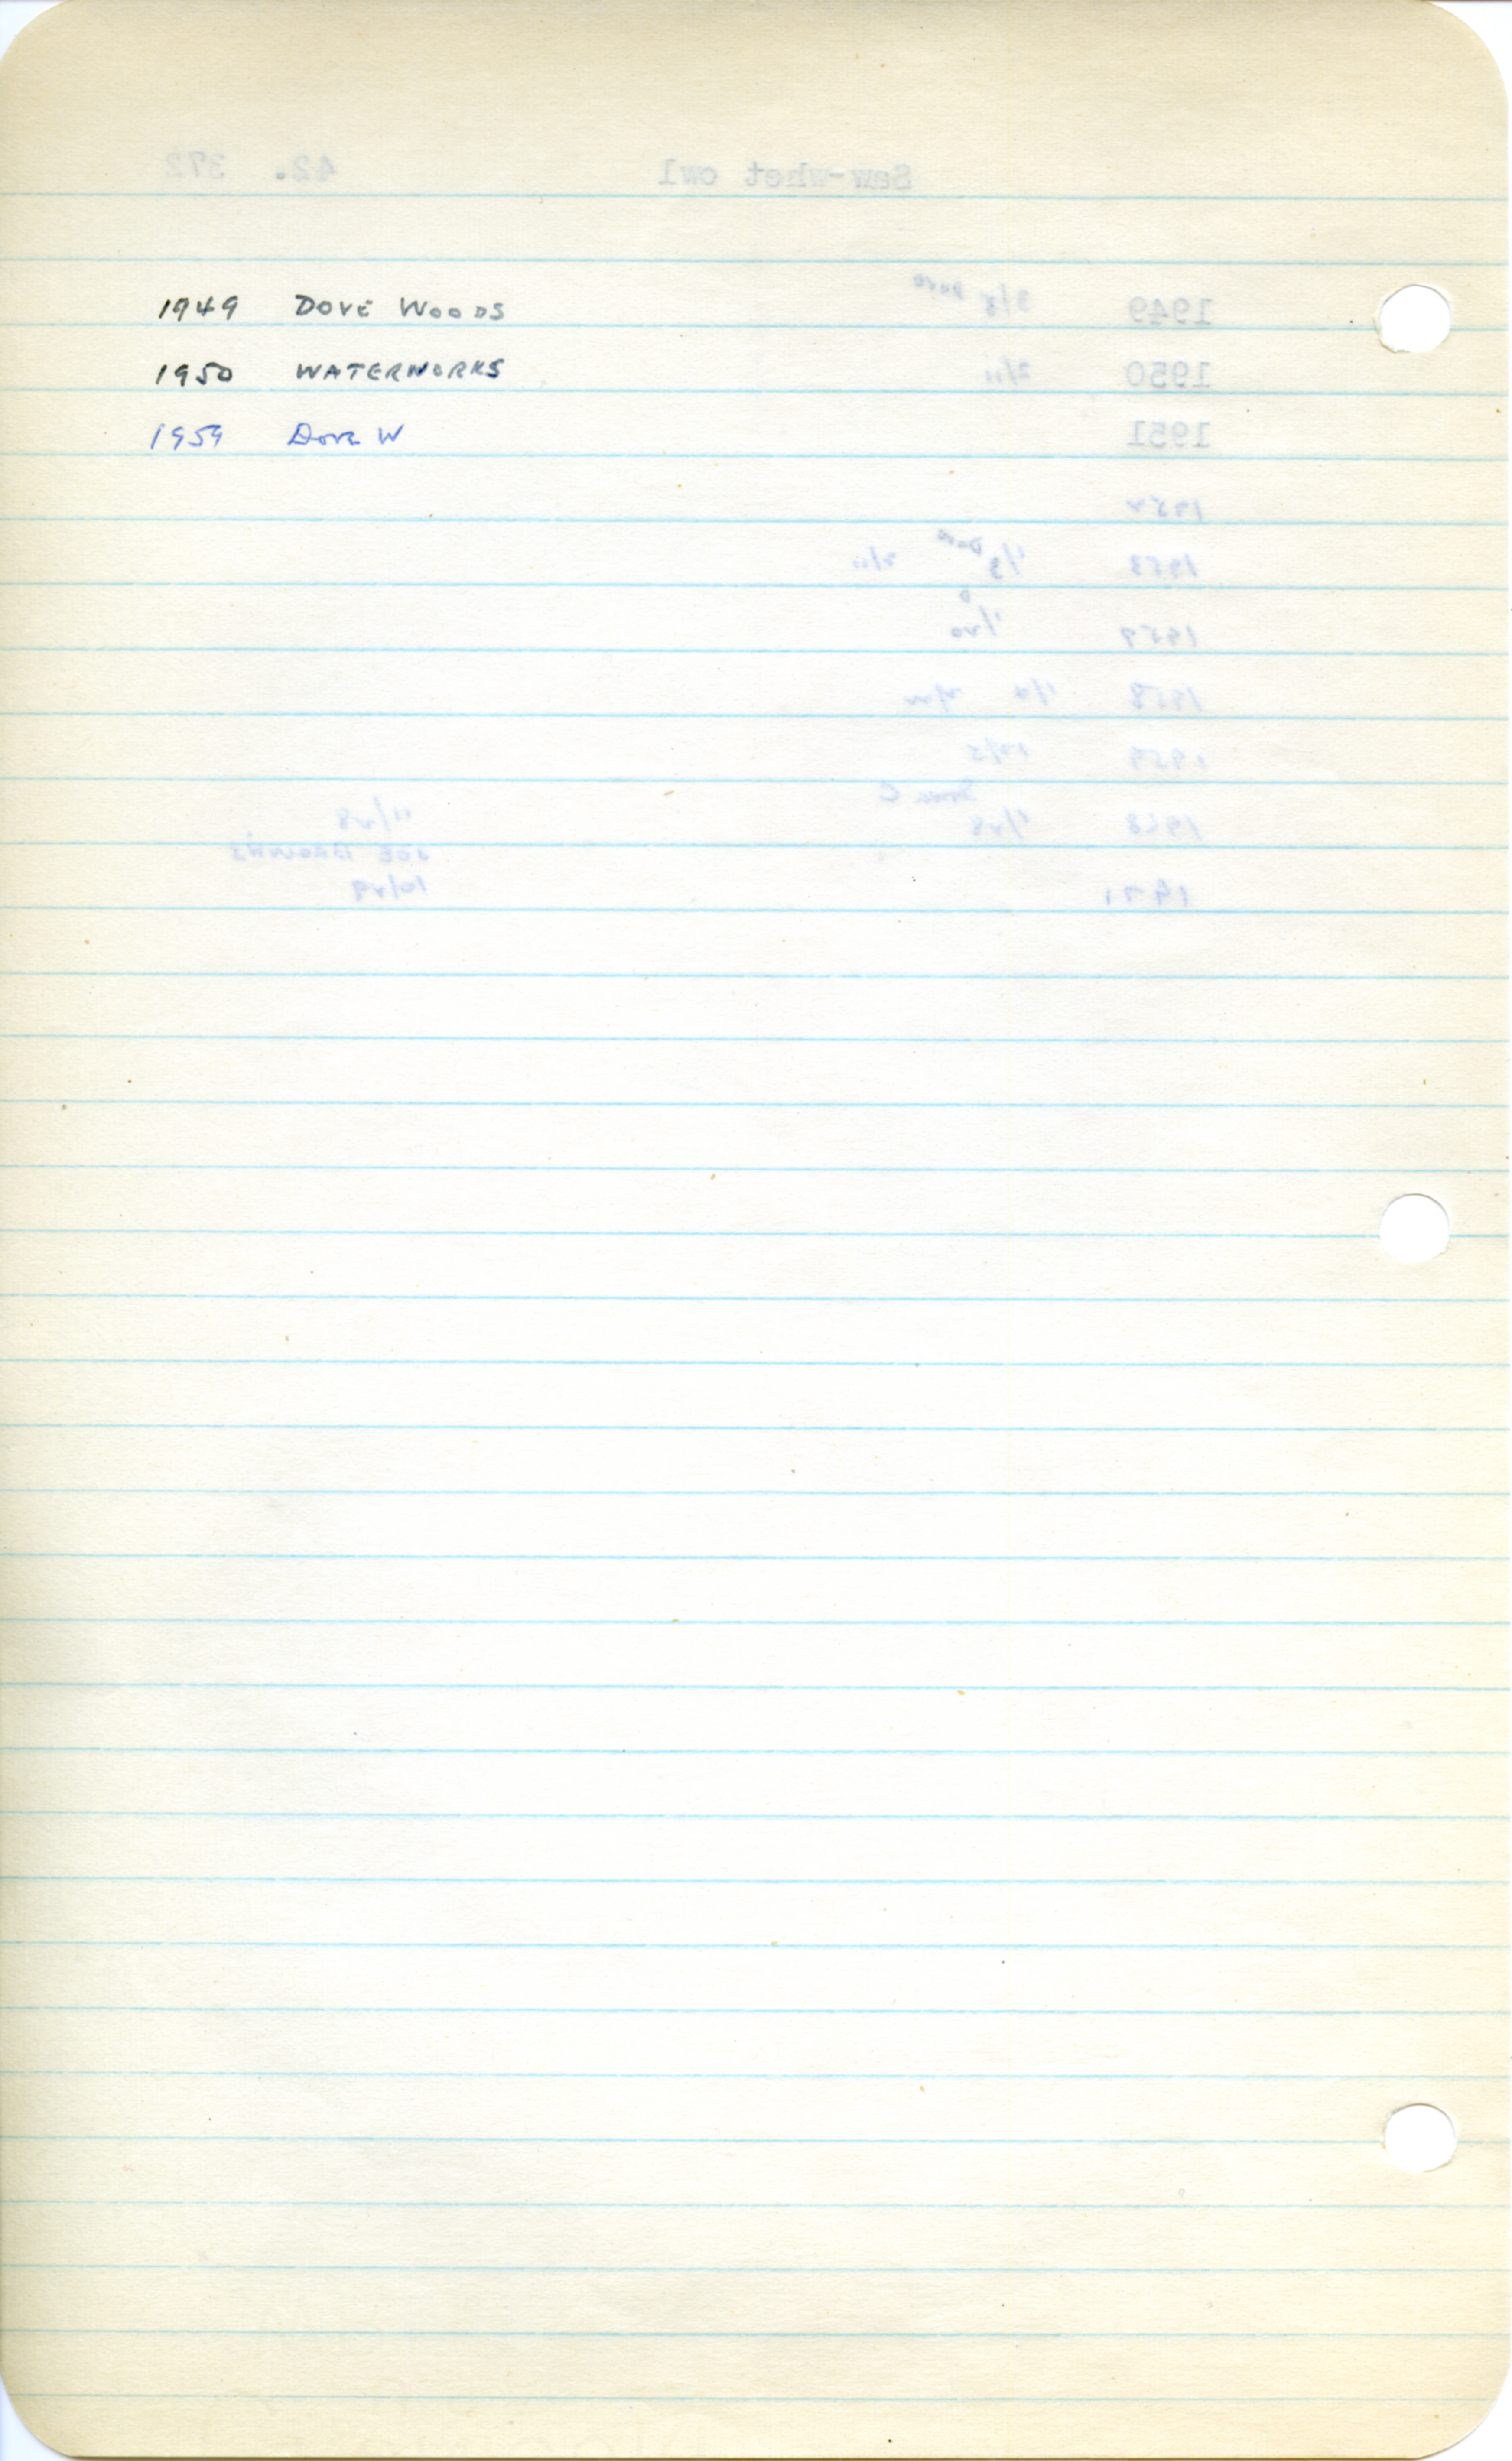 1949 DOVE WOODS
1950 WATERWORKS
1959 Dove W